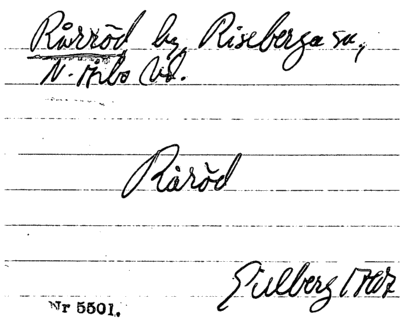 Rårröd by Riseberga sn,
N. Åsbo hd.
Råröd
Gillberg 1767
Nr 5501.